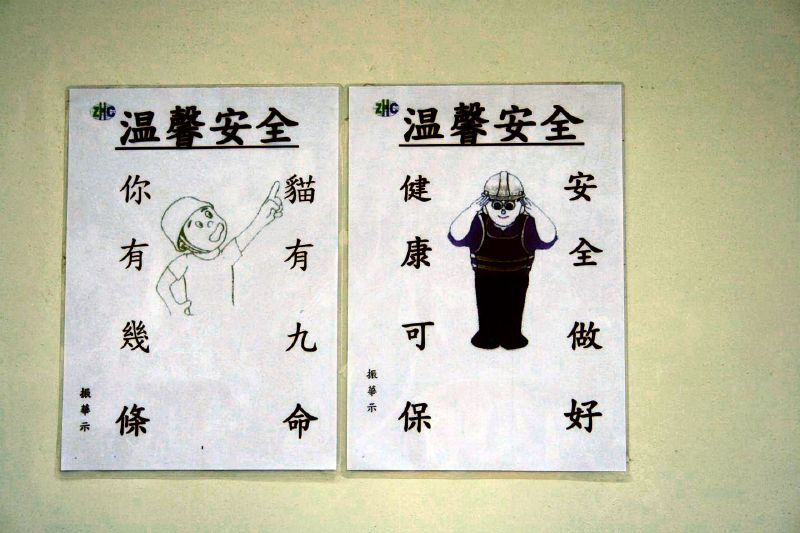 ZHC
温馨安全
貓有九命
你有幾條
振華示
ZHC
温馨安全
安全做好
健康可保
振華示